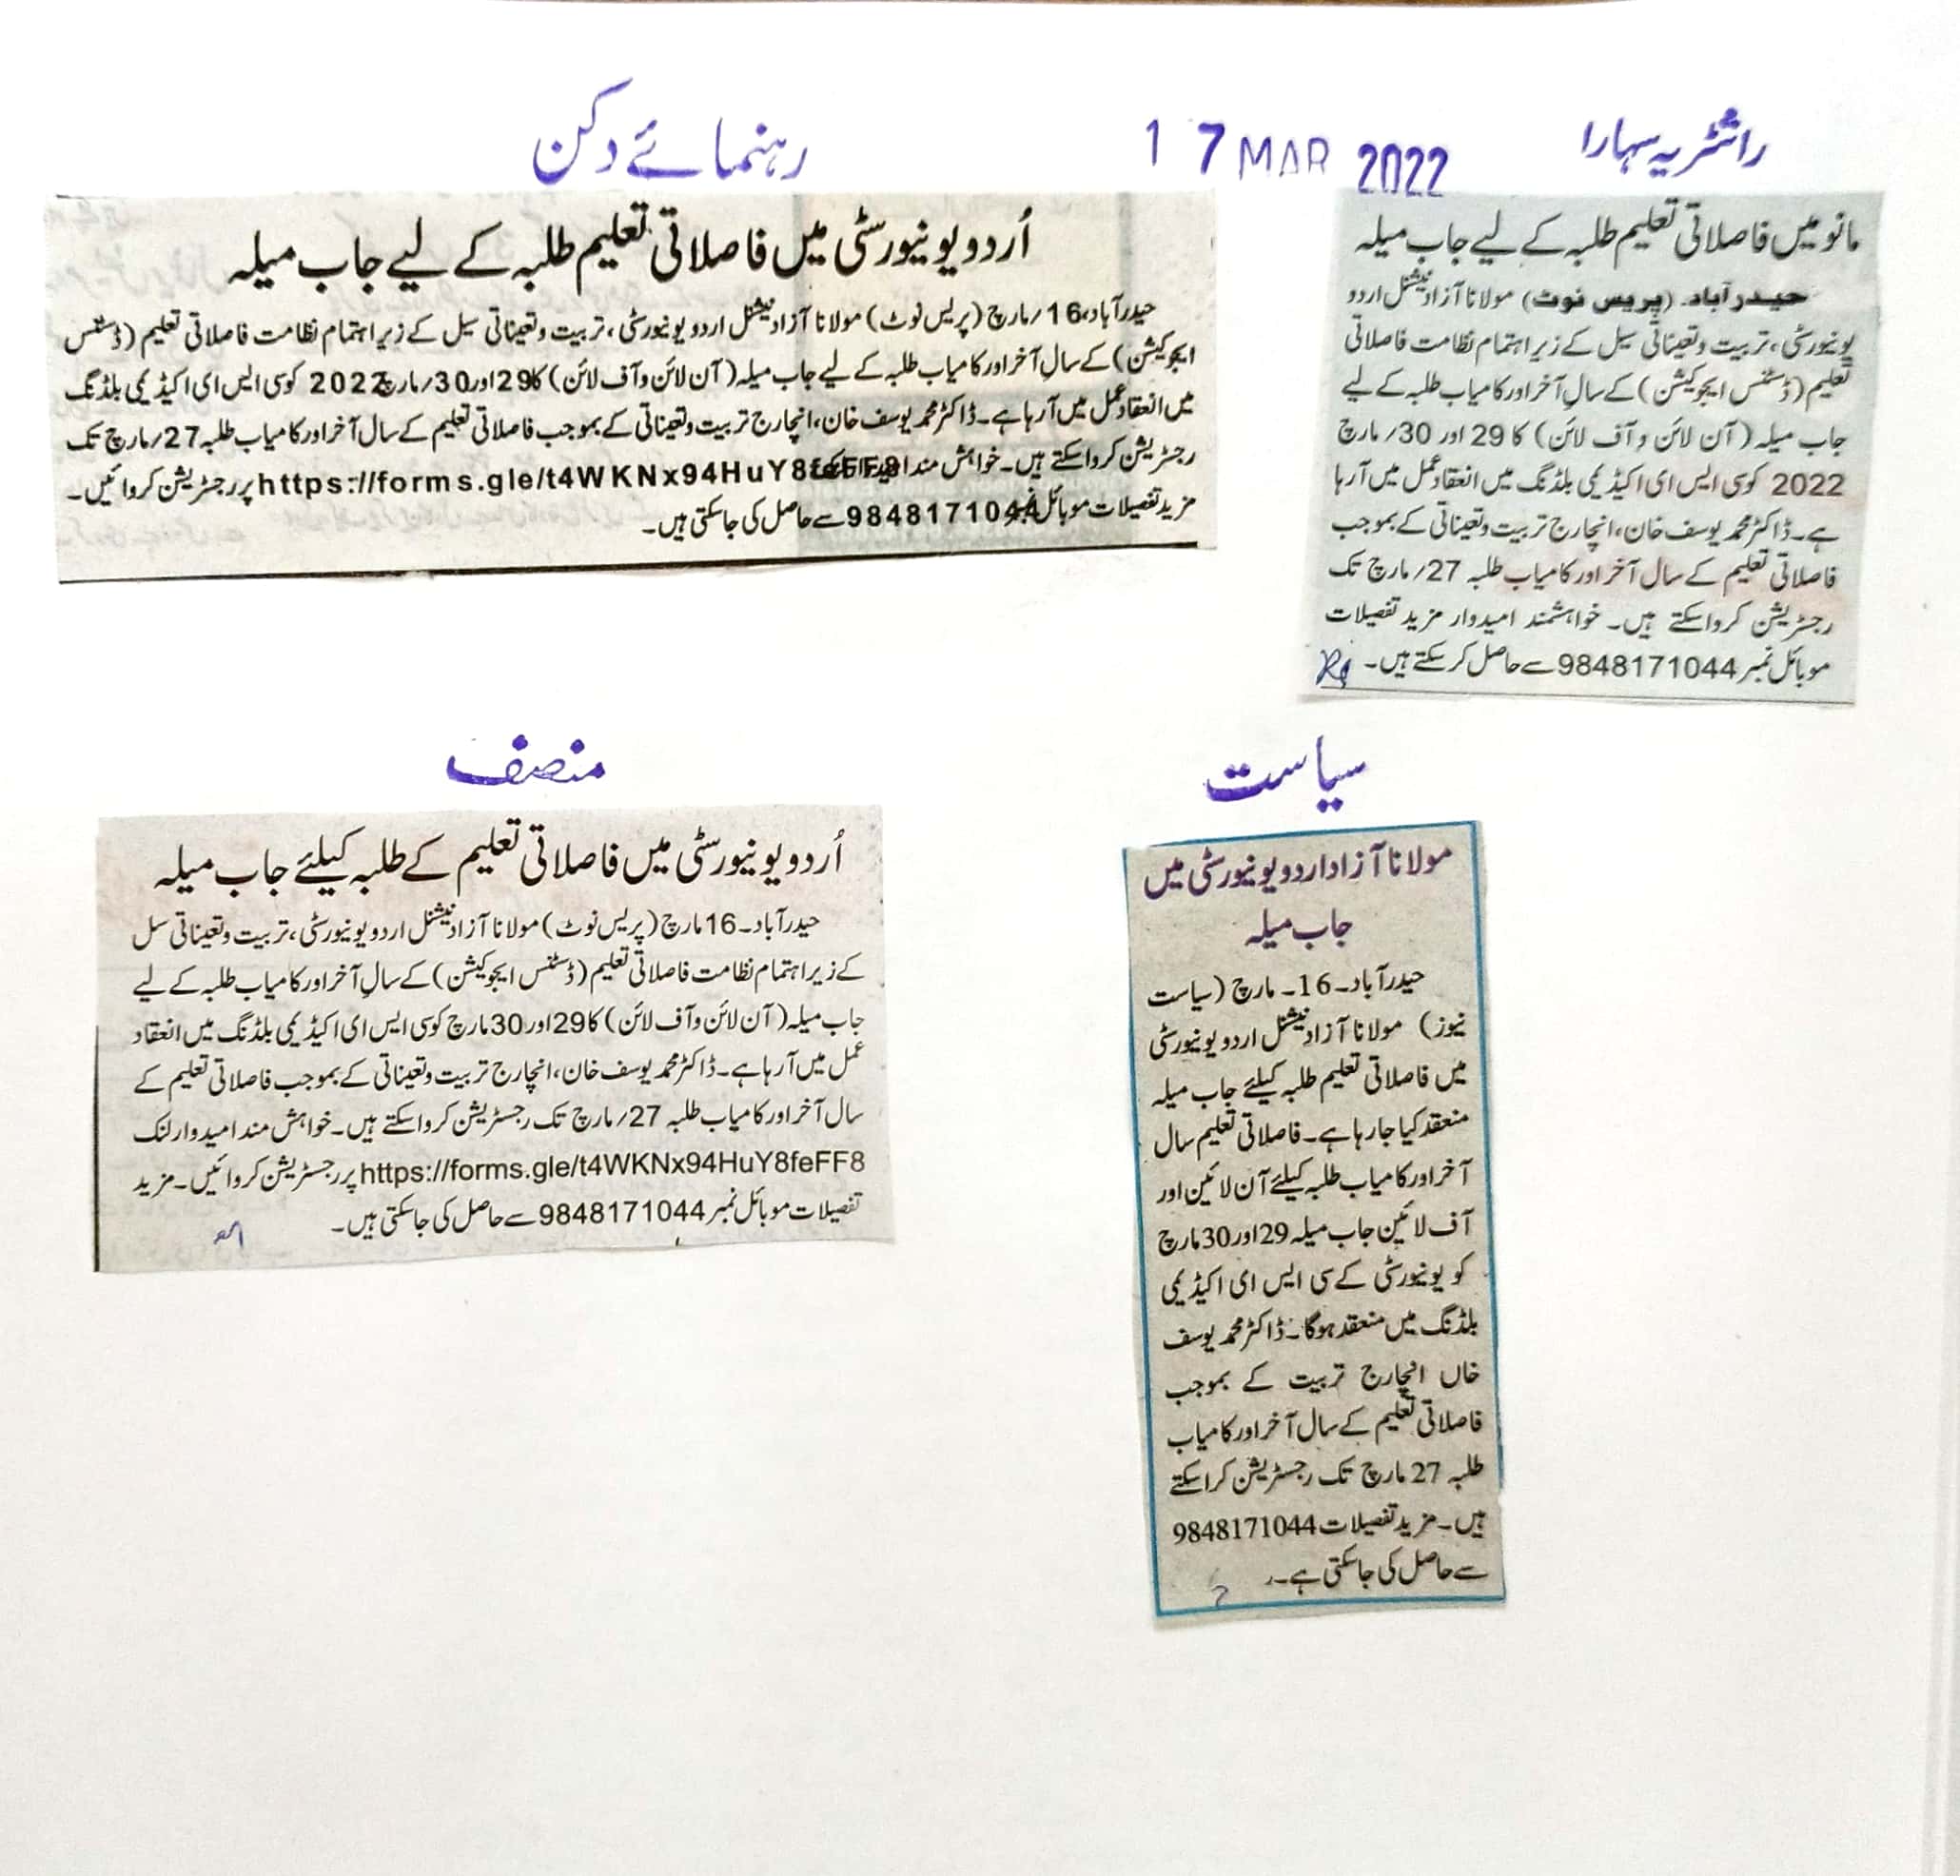 راشٹریہ سہارا
17 MAR 2022
رہنمائے دکن
مانو میں فاصلاتی تعلیم طلبہ کے لیے جاب میلہ
حیدرآباد۔ (پریس نوٹ) مولانا آزاد نیشنل اردو
یونیورسٹی، تربیت و تعیناتی سیل کے زیر اہتمام نظامت فاصلاتی
تعلیم (ڈسٹنس ایجوکیشن) کے سال آخر اور کامیاب طلبہ کے لیے
جاب میلہ (آن لائن و آف لائن) کا 29 اور 30/مارچ
2022 کو سی ایس ای اکیڈیمی بلڈنگ میں انعقاد عمل میں آرہا
ہے۔ ڈاکٹر محمد یوسف خان، انچارج تربیت و تعیناتی کے بموجب
فاصلاتی تعلیم کے سال آخر اور کامیاب طلبہ 27/مارچ تک
رجسٹریشن کرواسکتے ہیں۔ خواہشمند امیدوار مزید تفصیلات
موبائل نمبر 9848171044 سے حاصل کرسکتے ہیں۔
اُردو یونیورسٹی میں فاصلاتی تعلیم طلبہ کے لیے جاب میلہ
حیدرآباد، 16/مارچ (پریس نوٹ) مولانا آزاد نیشنل اردو یونیورسٹی، تربیت و تعیناتی سیل کے زیر اہتمام نظامت فاصلاتی تعلیم (ڈسٹنس
ایجوکیشن) کے سالِ آخر اور کامیاب طلبہ کے لیے جاب میلہ (آن لائن و آف لائن) کا 29 اور 30/مارچ 2022 کو سی ایس ای اکیڈیمی بلڈنگ
میں انعقاد عمل میں آرہا ہے۔ ڈاکٹر محمد یوسف خان، انچارج تربیت و تعیناتی کے بموجب فاصلاتی تعلیم کے سال آخر اور کامیاب طلبہ 27/مارچ تک
رجسٹریشن کرواسکتے ہیں۔ خواہش مند امیدوار لنک https://forms.gle/t4WKNx94HuY8feFF8 پر رجسٹریشن کروائیں۔
مزید تفصیلات موبائل نمبر 9848171044 سے حاصل کی جاسکتی ہیں۔
سیاست
مولانا آزاد اردو یونیورسٹی میں
جاب میلہ
حیدرآباد۔ 16۔ مارچ (سیاست
نیوز) مولانا آزاد نیشنل اردو یونیورسٹی
میں فاصلاتی تعلیم طلبہ کیلئے جاب میلہ
منعقد کیا جارہا ہے۔ فاصلاتی تعلیم سال
آخر اور کامیاب طلبہ کیلئے آن لائین اور
آف لائین جاب میلہ 29 اور 30 مارچ
کو یونیورسٹی کے سی ایس ای اکیڈیمی
بلڈنگ میں منعقد ہوگا۔ ڈاکٹر محمد یوسف
خاں انچارج تربیت کے بموجب
فاصلاتی تعلیم کے سال آخر اور کامیاب
طلبہ 27 مارچ تک رجسٹریشن کراسکتے
ہیں۔ مزید تفصیلات 9848171044
سے حاصل کی جاسکتی ہے۔
منصف
اُردو یونیورسٹی میں فاصلاتی تعلیم کے طلبہ کیلئے جاب میلہ
حیدرآباد۔ 16 مارچ (پریس نوٹ) مولانا آزاد نیشنل اردو یونیورسٹی، تربیت و تعیناتی سل
کے زیر اہتمام نظامت فاصلاتی تعلیم (ڈسٹنس ایجوکیشن) کے سالِ آخر اور کامیاب طلبہ کے لیے
جاب میلہ (آن لائن و آف لائن) کا 29 اور 30 مارچ کو سی ایس ای اکیڈیمی بلڈنگ میں انعقاد
عمل میں آرہا ہے۔ ڈاکٹر محمد یوسف خان، انچارج تربیت و تعیناتی کے بموجب فاصلاتی تعلیم کے
سال آخر اور کامیاب طلبہ 27/مارچ تک رجسٹریشن کرواسکتے ہیں۔ خواہش مند امیدوار لنک
https://forms.gle/t4WKNx94HuY8feFF8 پر رجسٹریشن کروائیں۔ مزید
تفصیلات موبائل نمبر 9848171044 سے حاصل کی جاسکتی ہیں۔